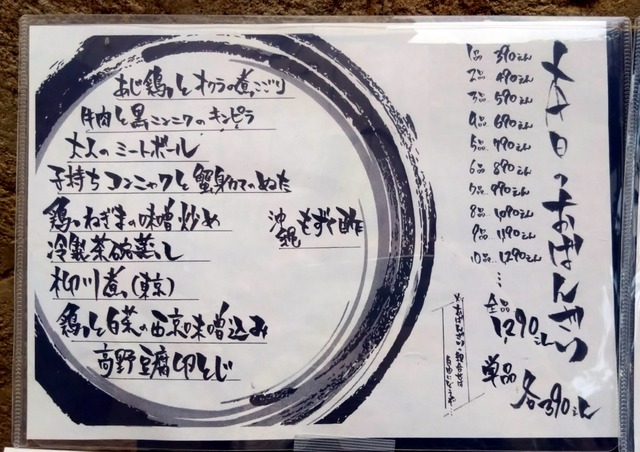 本日のおばんざい
1品 390えん
2品 490えん
3品 590えん
4品 690えん
5品 790えん
6品 890えん
7品 990えん
8品 1,090えん
9品 1,190えん
10品 1,290えん
⋮
全品
1,290えん
単品
各390えん
あじ鶏とオクラの煮こごり
牛肉と黒ニンニクのキンピラ
大人のミートボール
子持ちコンニャクと蟹身カマのぬた
鶏ねぎまの味噌炒め
沖縄もずく酢
冷製茶碗蒸し
柳川煮(東京)
鶏と白菜の西京味噌込み
高野豆腐卵とじ